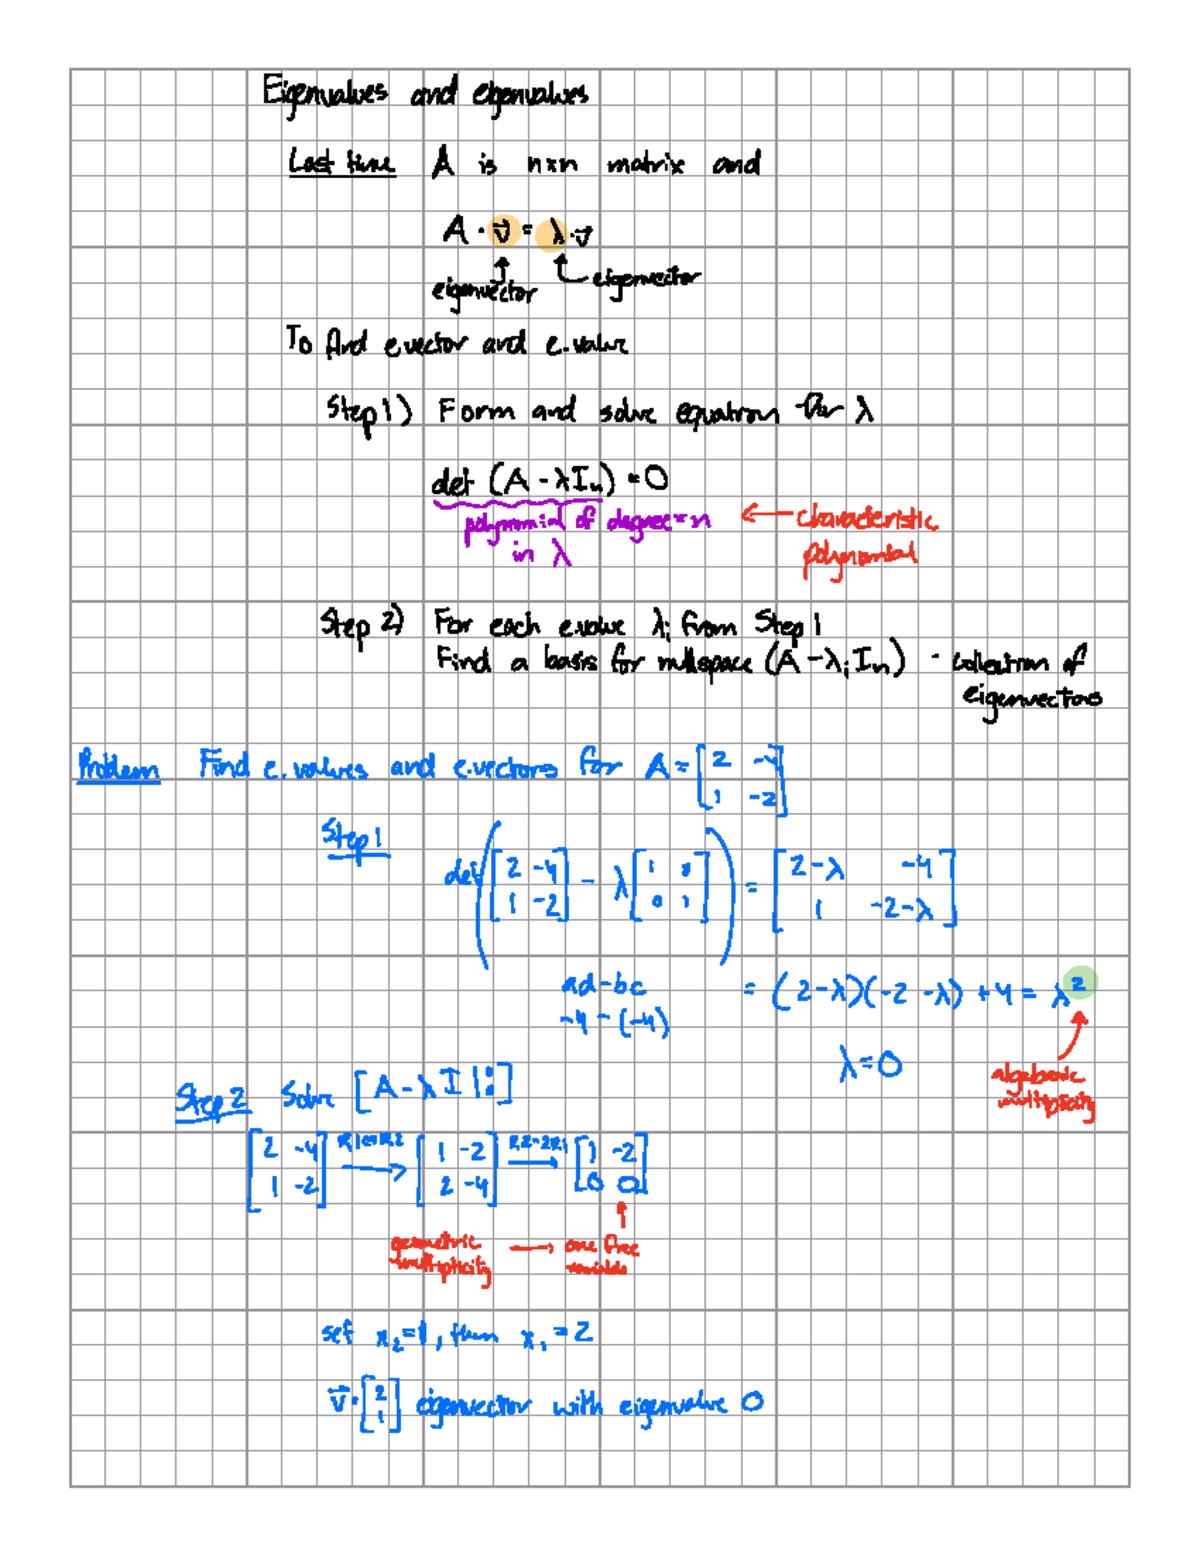 Eigenvalues and eigenvalues
Last time A is n×n matrix and
A · v⃗ = λ · v⃗
eigenvector eigenvector
To find e.vector and e.value
Step 1) Form and solve equation for λ
det (A - λIₙ) = 0
polynomial of degree = n
in λ
← characteristic
polynomial
Step 2) For each e.value λᵢ from Step 1
Find a basis for nullspace (A - λᵢIₙ) - collection of
eigenvectors
Problem Find e.values and e.vectors for A = [2 -4
1 -2]
Step 1
det([2 -4; 1 -2] - λ[1 0; 0 1]) = [2-λ -4; 1 -2-λ]
ad-bc = (2-λ)(-2-λ) + 4 = λ²
-4 - (-4)
λ = 0
algebraic
multiplicity
Step 2 Solve [A - λI | :]
[2 -4; 1 -2] R1↔R2 → [1 -2; 2 -4] R2-2R1 → [1 -2; 0 0]
geometric → one free
multiplicity variable
set x₂=1, then x₁=2
v⃗ = [2; 1] eigenvector with eigenvalue 0